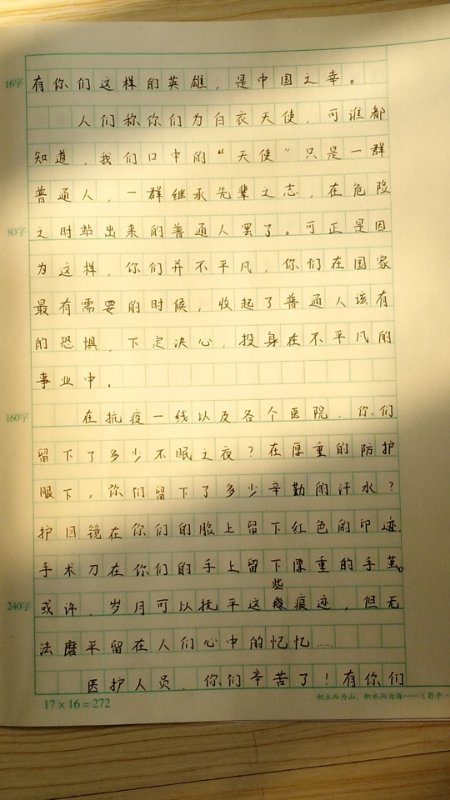 16字
有你们这样的英雄，是中国之幸。
人们称你们为白衣天使，可谁都
知道，我们口中的“天使”只是一群
普通人，一群继承先辈之志，在危险
80字
之时站出来的普通人罢了。可正是因
为这样，你们并不平凡，你们在国家
最有需要的时候，收起了普通人该有
的恐惧，下定决心，投身在不平凡的
事业中。
160字
在抗疫一线以及各个医院，你们
留下了多少不眠之夜？在厚重的防护
服下，你们留下了多少辛勤的汗水？
护目镜在你们的脸上留下红色的印迹，
手术刀在你们的手上留下厚重的手茧。
240字
或许，岁月可以抚平这些痕迹，但无
法磨平留在人们心中的记忆……
医护人员，你们辛苦了！有你们
17×16=272
积土而为山，积水而为海——《荀子·